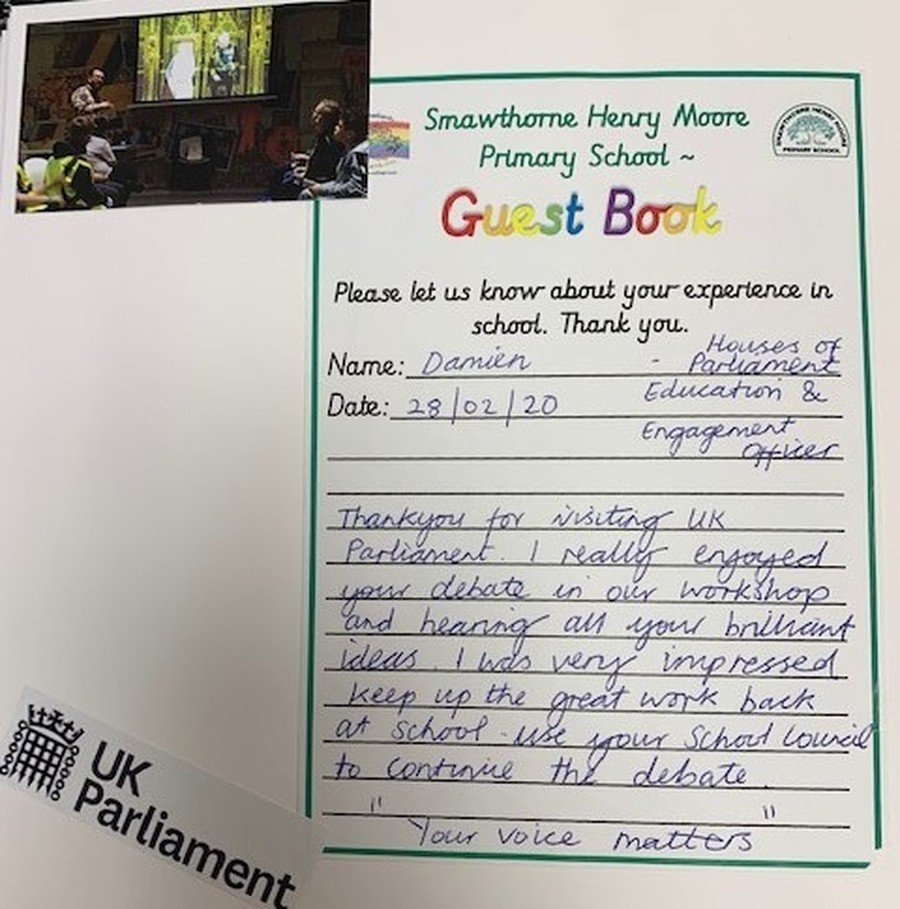 Smawthorne Henry Moore
Primary School ~
SMAWTHORNE HENRY MOORE
PRIMARY SCHOOL
Guest Book
Please let us know about your experience in
school. Thank you.
Name: Damien - Houses of
Parliament
Date: 28/02/20 Education &
Engagement
Officer
Thankyou for visiting UK
Parliament. I really enjoyed
your debate in our workshop
and hearing all your brilliant
ideas. I was very impressed
keep up the great work back
at school - use your School Council
to continue the debate.
"Your voice matters"
UK
Parliament